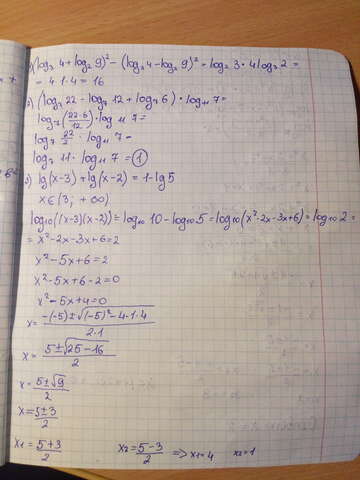 (log₃ 4 + log₂ 9)² − (log₃ 4 − log₂ 9)² = log₂ 3 · 4 log₃ 2 =
= 4 · 1 · 4 = 16
(log₇ 22 − log₇ 12 + log₇ 6) · log₁₁ 7 =
log₇ (22·6/12) · log₁₁ 7 =
log₇ 22/2 · log₁₁ 7 =
log₇ 11 · log₁₁ 7 = 1
lg(x−3) + lg(x−2) = 1 − lg5
x ∈ (3; +∞)
log₁₀((x−3)(x−2)) = log₁₀ 10 − log₁₀ 5 = log₁₀(x²−2x−3x+6) = log₁₀ 2 =
= x²−2x−3x+6 = 2
x²−5x+6 = 2
x²−5x+6−2 = 0
x²−5x+4 = 0
x = −(−5) ± √(−5)²−4·1·4 / 2·1
x = 5 ± √25−16 / 2
x = 5 ± √9 / 2
x = 5 ± 3 / 2
x₁ = 5+3 / 2 x₂ = 5−3 / 2 => x₁ = 4 x₂ = 1